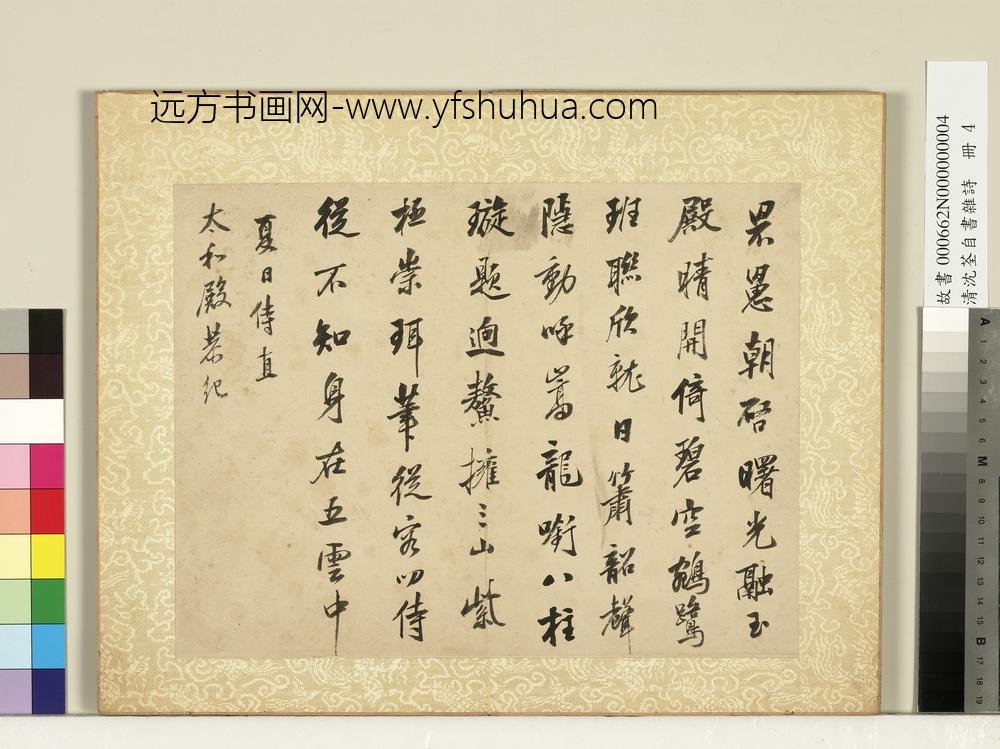 远方书画网-www.yfshuhua.com
罘罳朝啓曙光融玉
殿晴開倚碧空鵷鷺
班聯欣就日簫韶聲
隱動呼嵩龍銜八柱
璇題迥鰲擁三山紫
極崇珥筆從容叨侍
從不知身在五雲中
夏日侍直
太和殿恭紀
故書 000662N000000004
清沈荃自書雜詩 冊 4
A 1 2 3 4 5 6 M 8 9 10 11 12 13 14 15 B 17 18 19